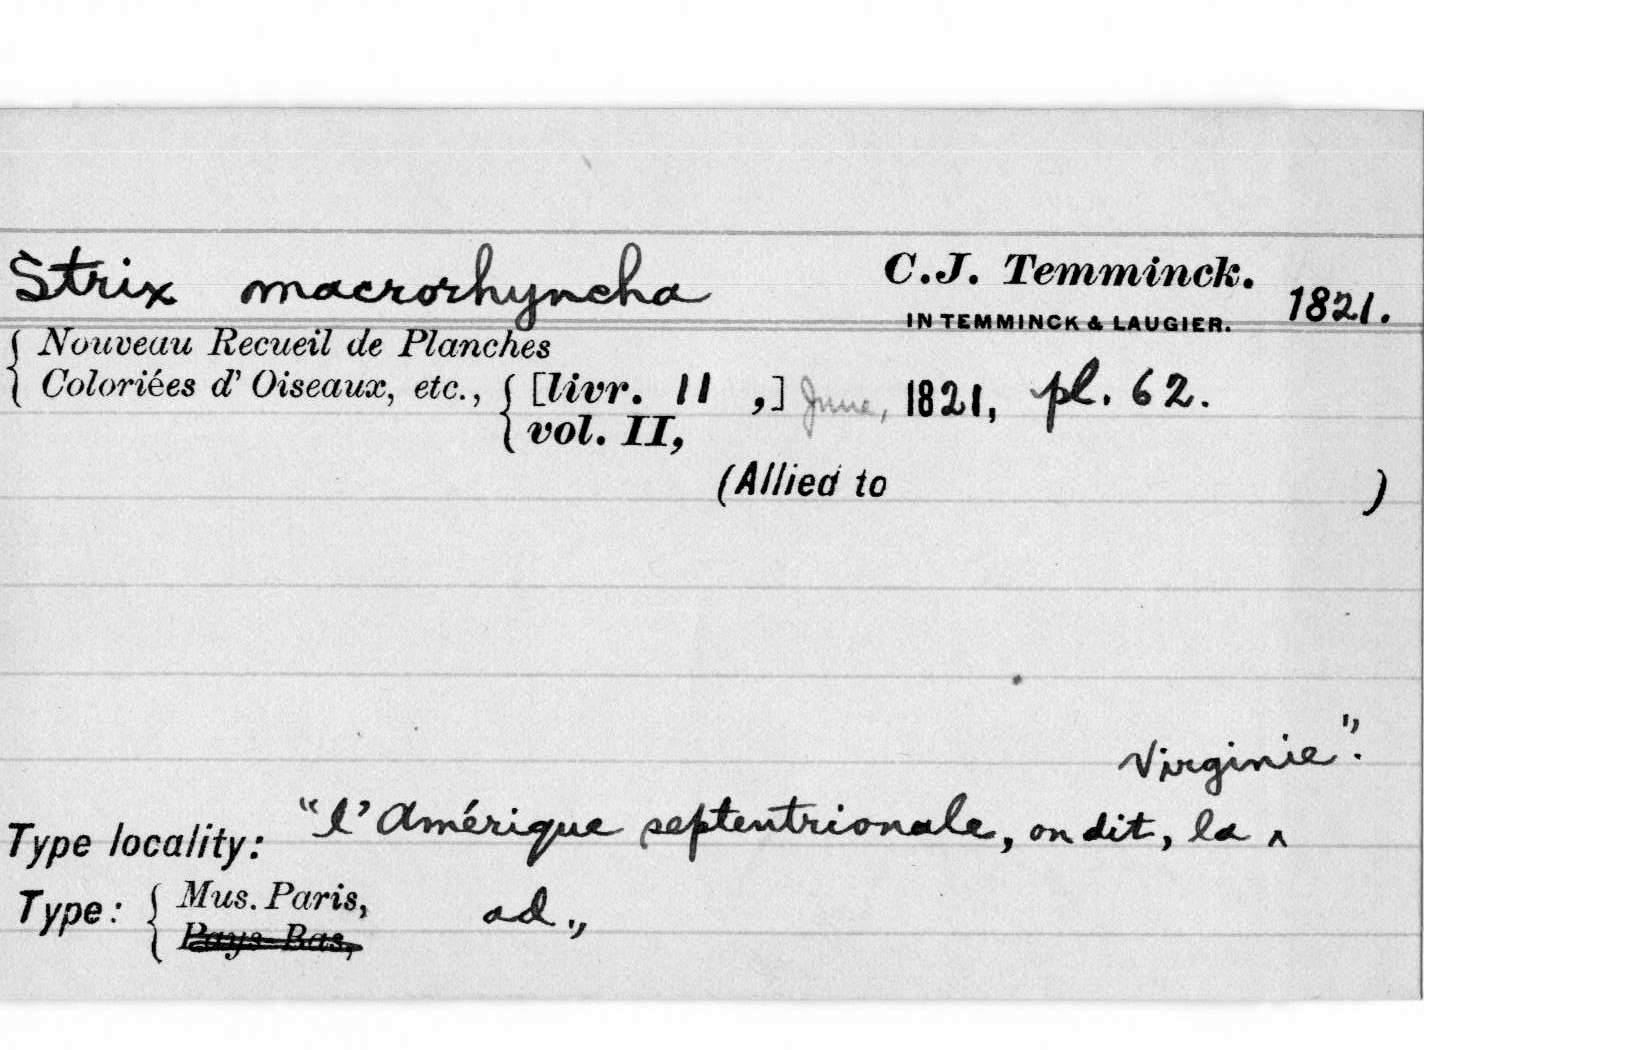 Strix macrorhyncha C.J. Temminck.
IN TEMMINCK & LAUGIER. 1821.
{ Nouveau Recueil de Planches
Coloriées d' Oiseaux, etc., { [livr. 11 ,] June, 1821, pl. 62.
vol. II,
(Allied to )
Virginie".
Type locality: "l'Amérique septentrionale, on dit, la ^
Type: { Mus. Paris, ad.,
Pays-Bas,